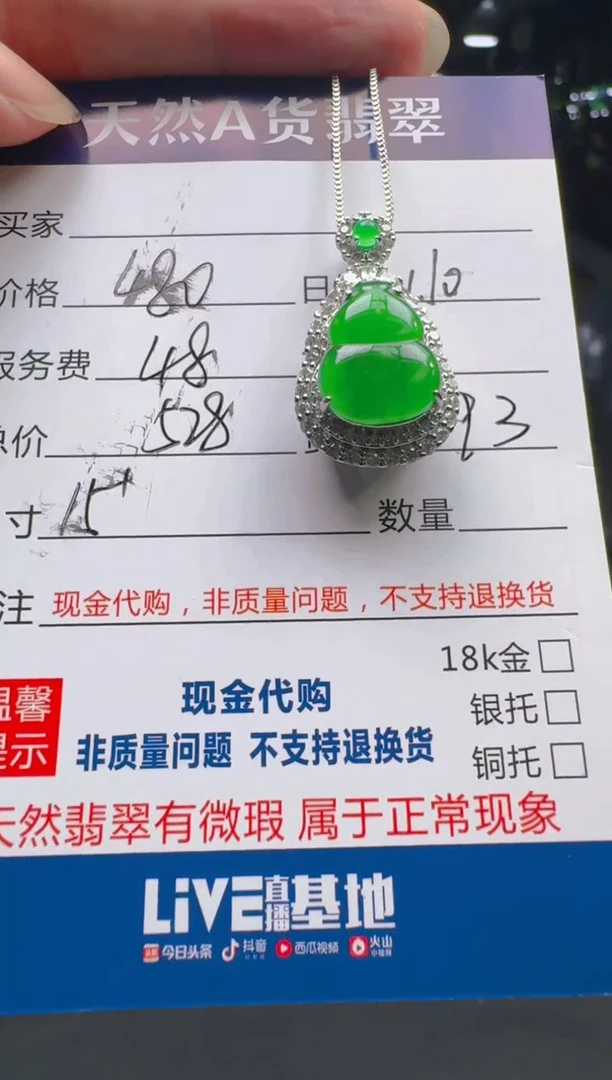 天然A货翡翠
买家
价格 480 日 10
服务费 48
总价 528 93
寸 15
数量
注 现金代购，非质量问题，不支持退换货
18k金
温馨提示
现金代购
非质量问题 不支持退换货
银托
铜托
天然翡翠有微瑕 属于正常现象
LiVE直播基地
今日头条 抖音 西瓜视频 火山